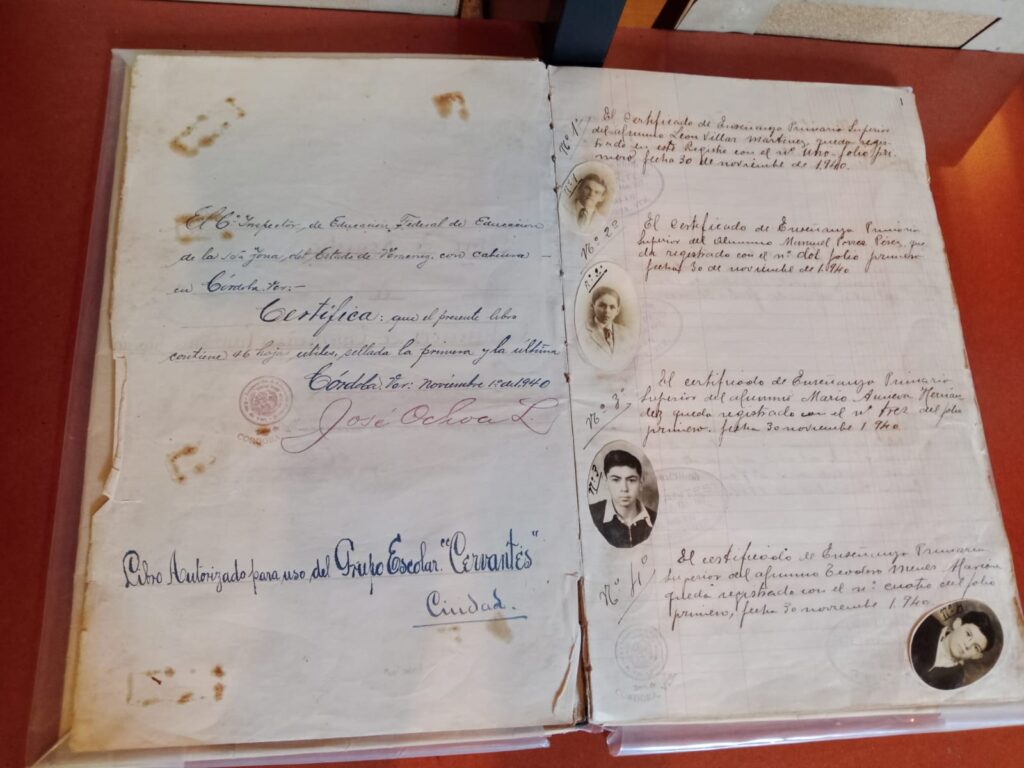 El C. Inspector, de Educación, Federal de Educacion
de la Zona, del Estado de Veracruz, con cabecera -
en Córdoba Ver:-
Certifica: que el presente libro
contiene 46 hojas utiles, sellada la primera y la última
Córdoba, Ver: Noviembre 1º de 1940
José Ochoa L.
CORDOBA
Libro Autorizado para uso del Grupo Escolar "Cervantes"
Ciudad.
1
Nº 1º
El Certificado de Enseñanza Primaria Superior
del alumno Leon Villar Martinez queda regis-
trado en este Registro con el nº uno - folio pri-
mero, fecha 30 de noviembre de 1,940.
Nº 1
Nº 2º
El Certificado de Enseñanza Primaria
Superior del alumno Manuel Pérez, que
da registrado con el nº dos folio primero
fecha 30 de noviembre de 1.940
Nº 2
Nº 3º
El certificado de Enseñanza Primaria
Superior del alumno Mario Hernan
dez queda registrado con el nº tres del folio
primero. fecha 30 noviembre 1.940.
Nº 3
Nº 4º
El certificado de Enseñanza Primaria
Superior del alumno Teodoro
queda registrado con el nº cuatro del folio
primero, fecha 30 noviembre 1.940.